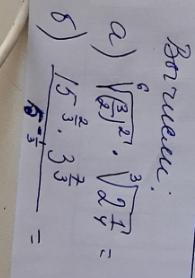 Вычислит:
а) \sqrt[6]{(\frac{3}{2})^2} \cdot \sqrt[3]{2\frac{1}{4}} =
б) \frac{15^{\frac{2}{3}} \cdot 3^{\frac{7}{3}}}{5^{-\frac{1}{3}}} =